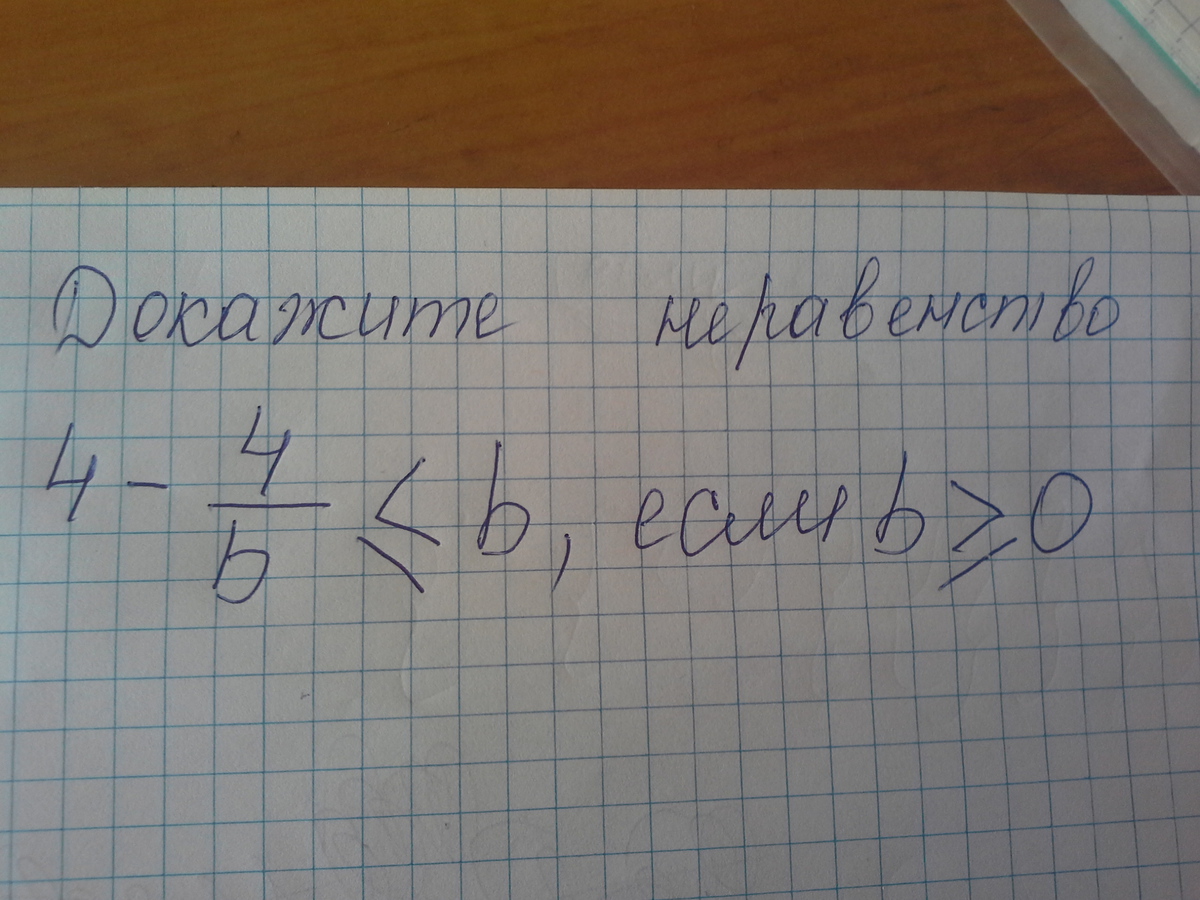 Докажите неравенство
4 - 4/b ≤ b, если b ≥ 0